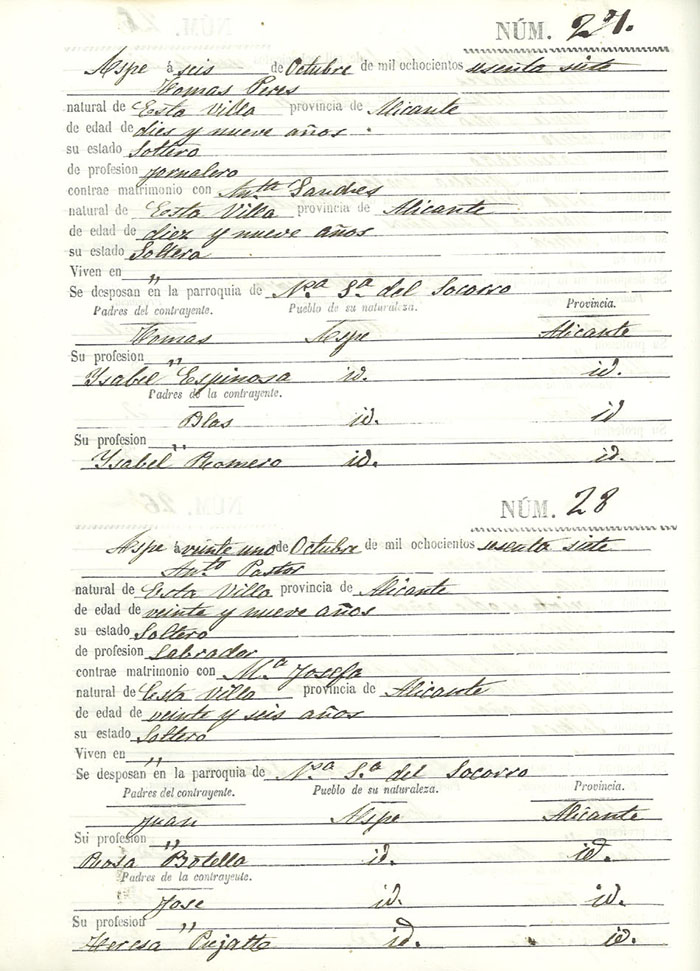 NÚM. 27.
Aspe á seis de Octubre de mil ochocientos sesenta siete
Tomas Peres
natural de Esta Villa provincia de Alicante
de edad de dies y nueve años
su estado Soltero
de profesion Jornalero
contrae matrimonio con Antª
natural de Eesta Villa provincia de Alicante
de edad de diez y nueve años
su estado Soltera
Viven en "
Se desposan en la parroquia de Nra Sª del Socorro
Padres del contrayente. Pueblo de su naturaleza. Provincia.
Tomas Aspe Alicante
Su profesion "
Ysabel Espinosa id. id.
Padres de la contrayente.
Blas id. id
Su profesion "
Ysabel Romero id. id.
NÚM. 28
Aspe á veinte uno de Octubre de mil ochocientos sesenta siete
Antº Pastor
natural de Esta Villa provincia de Alicante
de edad de veinte y nueve años
su estado Soltero
de profesion Labrador
contrae matrimonio con Mª Josefa
natural de Esta Villa provincia de Alicante
de edad de veinte y seis años
su estado Soltero
Viven en "
Se desposan en la parroquia de Nra Sª del Socorro
Padres del contrayente. Pueblo de su naturaleza. Provincia.
Juan Aspe Alicante
Su profesion "
Rosa Botella id. id.
Padres de la contrayente.
Jose id. id.
Su profesion "
Teresa id. id.